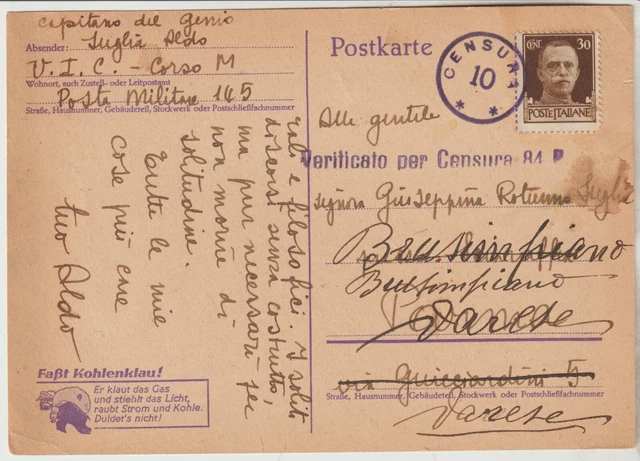 Capitano del Genio
Absender: Suglia Aldo
V. I. C. - Corso M
Wohnort, auch Zustell- oder Leitpostamt
Posta Militare 165
Straße, Hausnummer, Gebäudeteil, Stockwerk oder Postschließfachnummer
Postkarte
CENSURA
10
CENT. 30
POSTE ITALIANE
Alla gentile
Verificato per Censura 84 R
Signora Giuseppina Rotunno Suglia
Besuimpiano
Varese
via Guicciardini 5
Straße, Hausnummer, Gebäudeteil, Stockwerk oder Postschließfachnummer
Varese
rali e filosofici. I soliti
discorsi senza costrutto,
ma pur necessari per
non morire di
solitudine.
Tutte le mie
cose più care
tuo Aldo
Faßt Kohlenklau!
Er klaut das Gas
und stiehlt das Licht,
raubt Strom und Kohle.
Duldet's nicht!